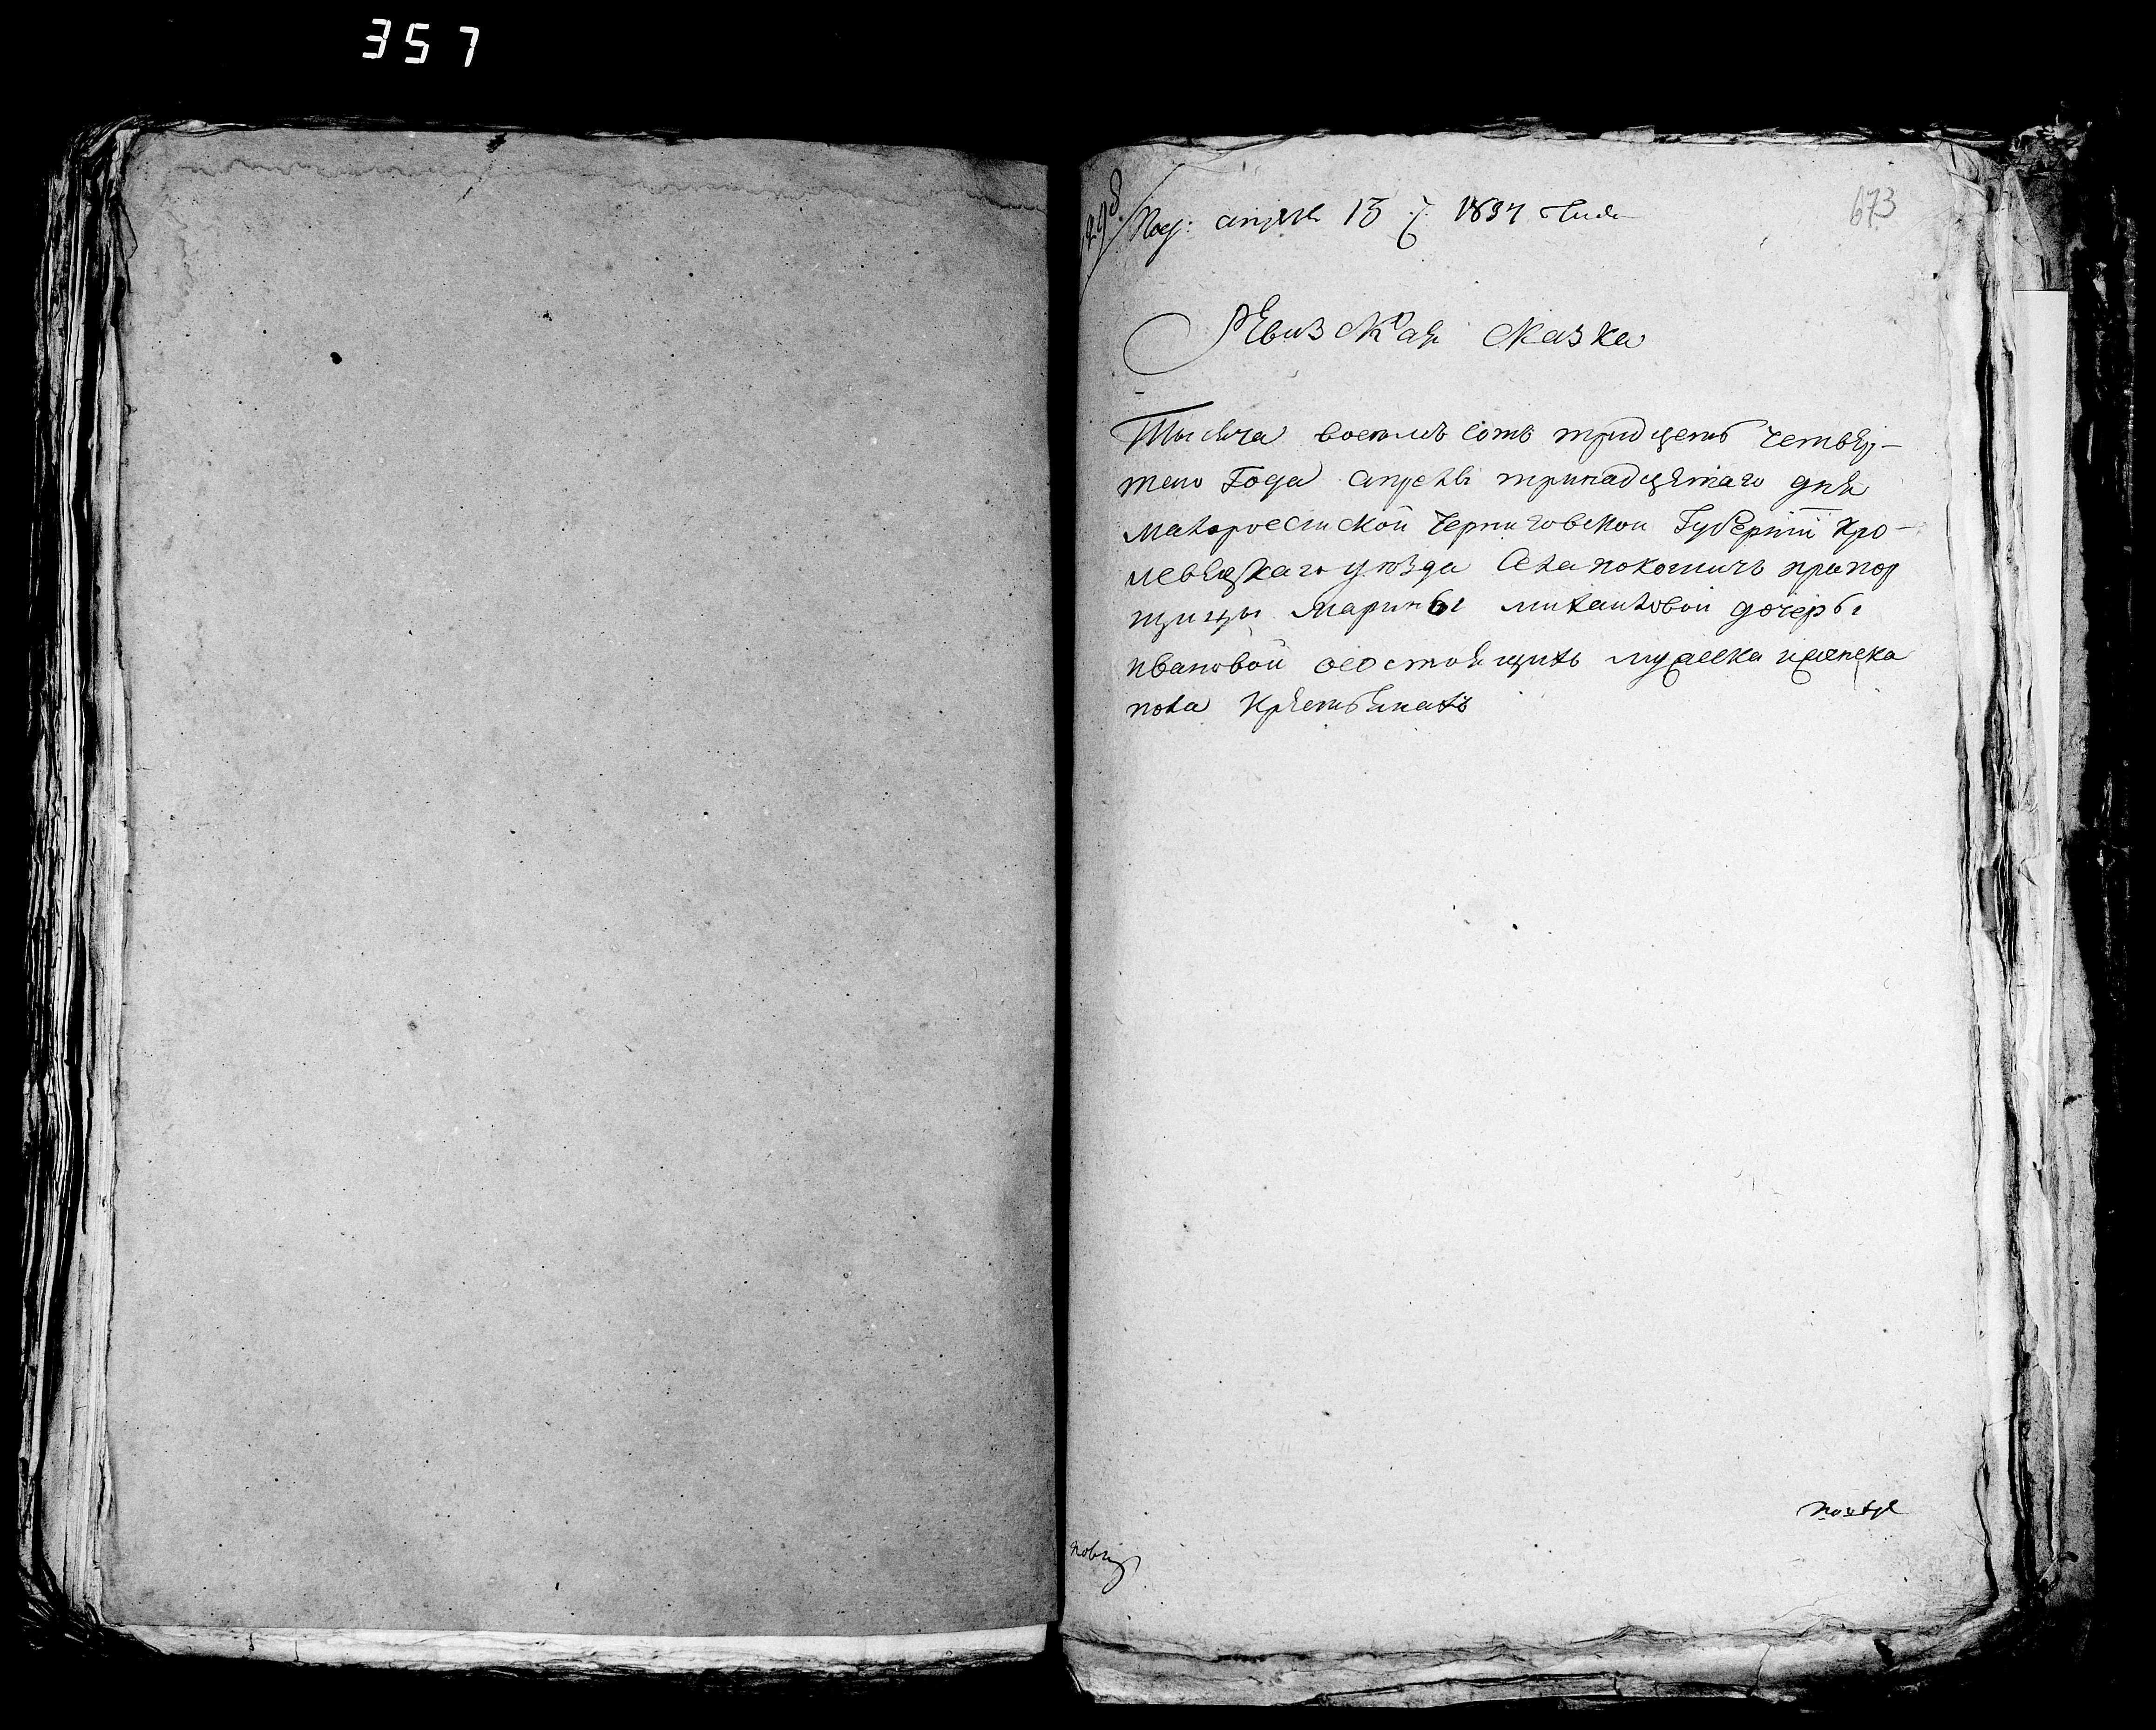 357
673
298
апреля 13 1834
Ревизская сказка
Тысяча восемь сотъ тридцеть четьвер-
таго Года апреля тринадцетаго дня
малороссиской Черниговской Губернии Кро-
левецкаго уезда села покошичъ прапор
щицы марины михаиловой дочеры
ивановой осостоящихъ мужеска иженска
пола Крестьянахъ